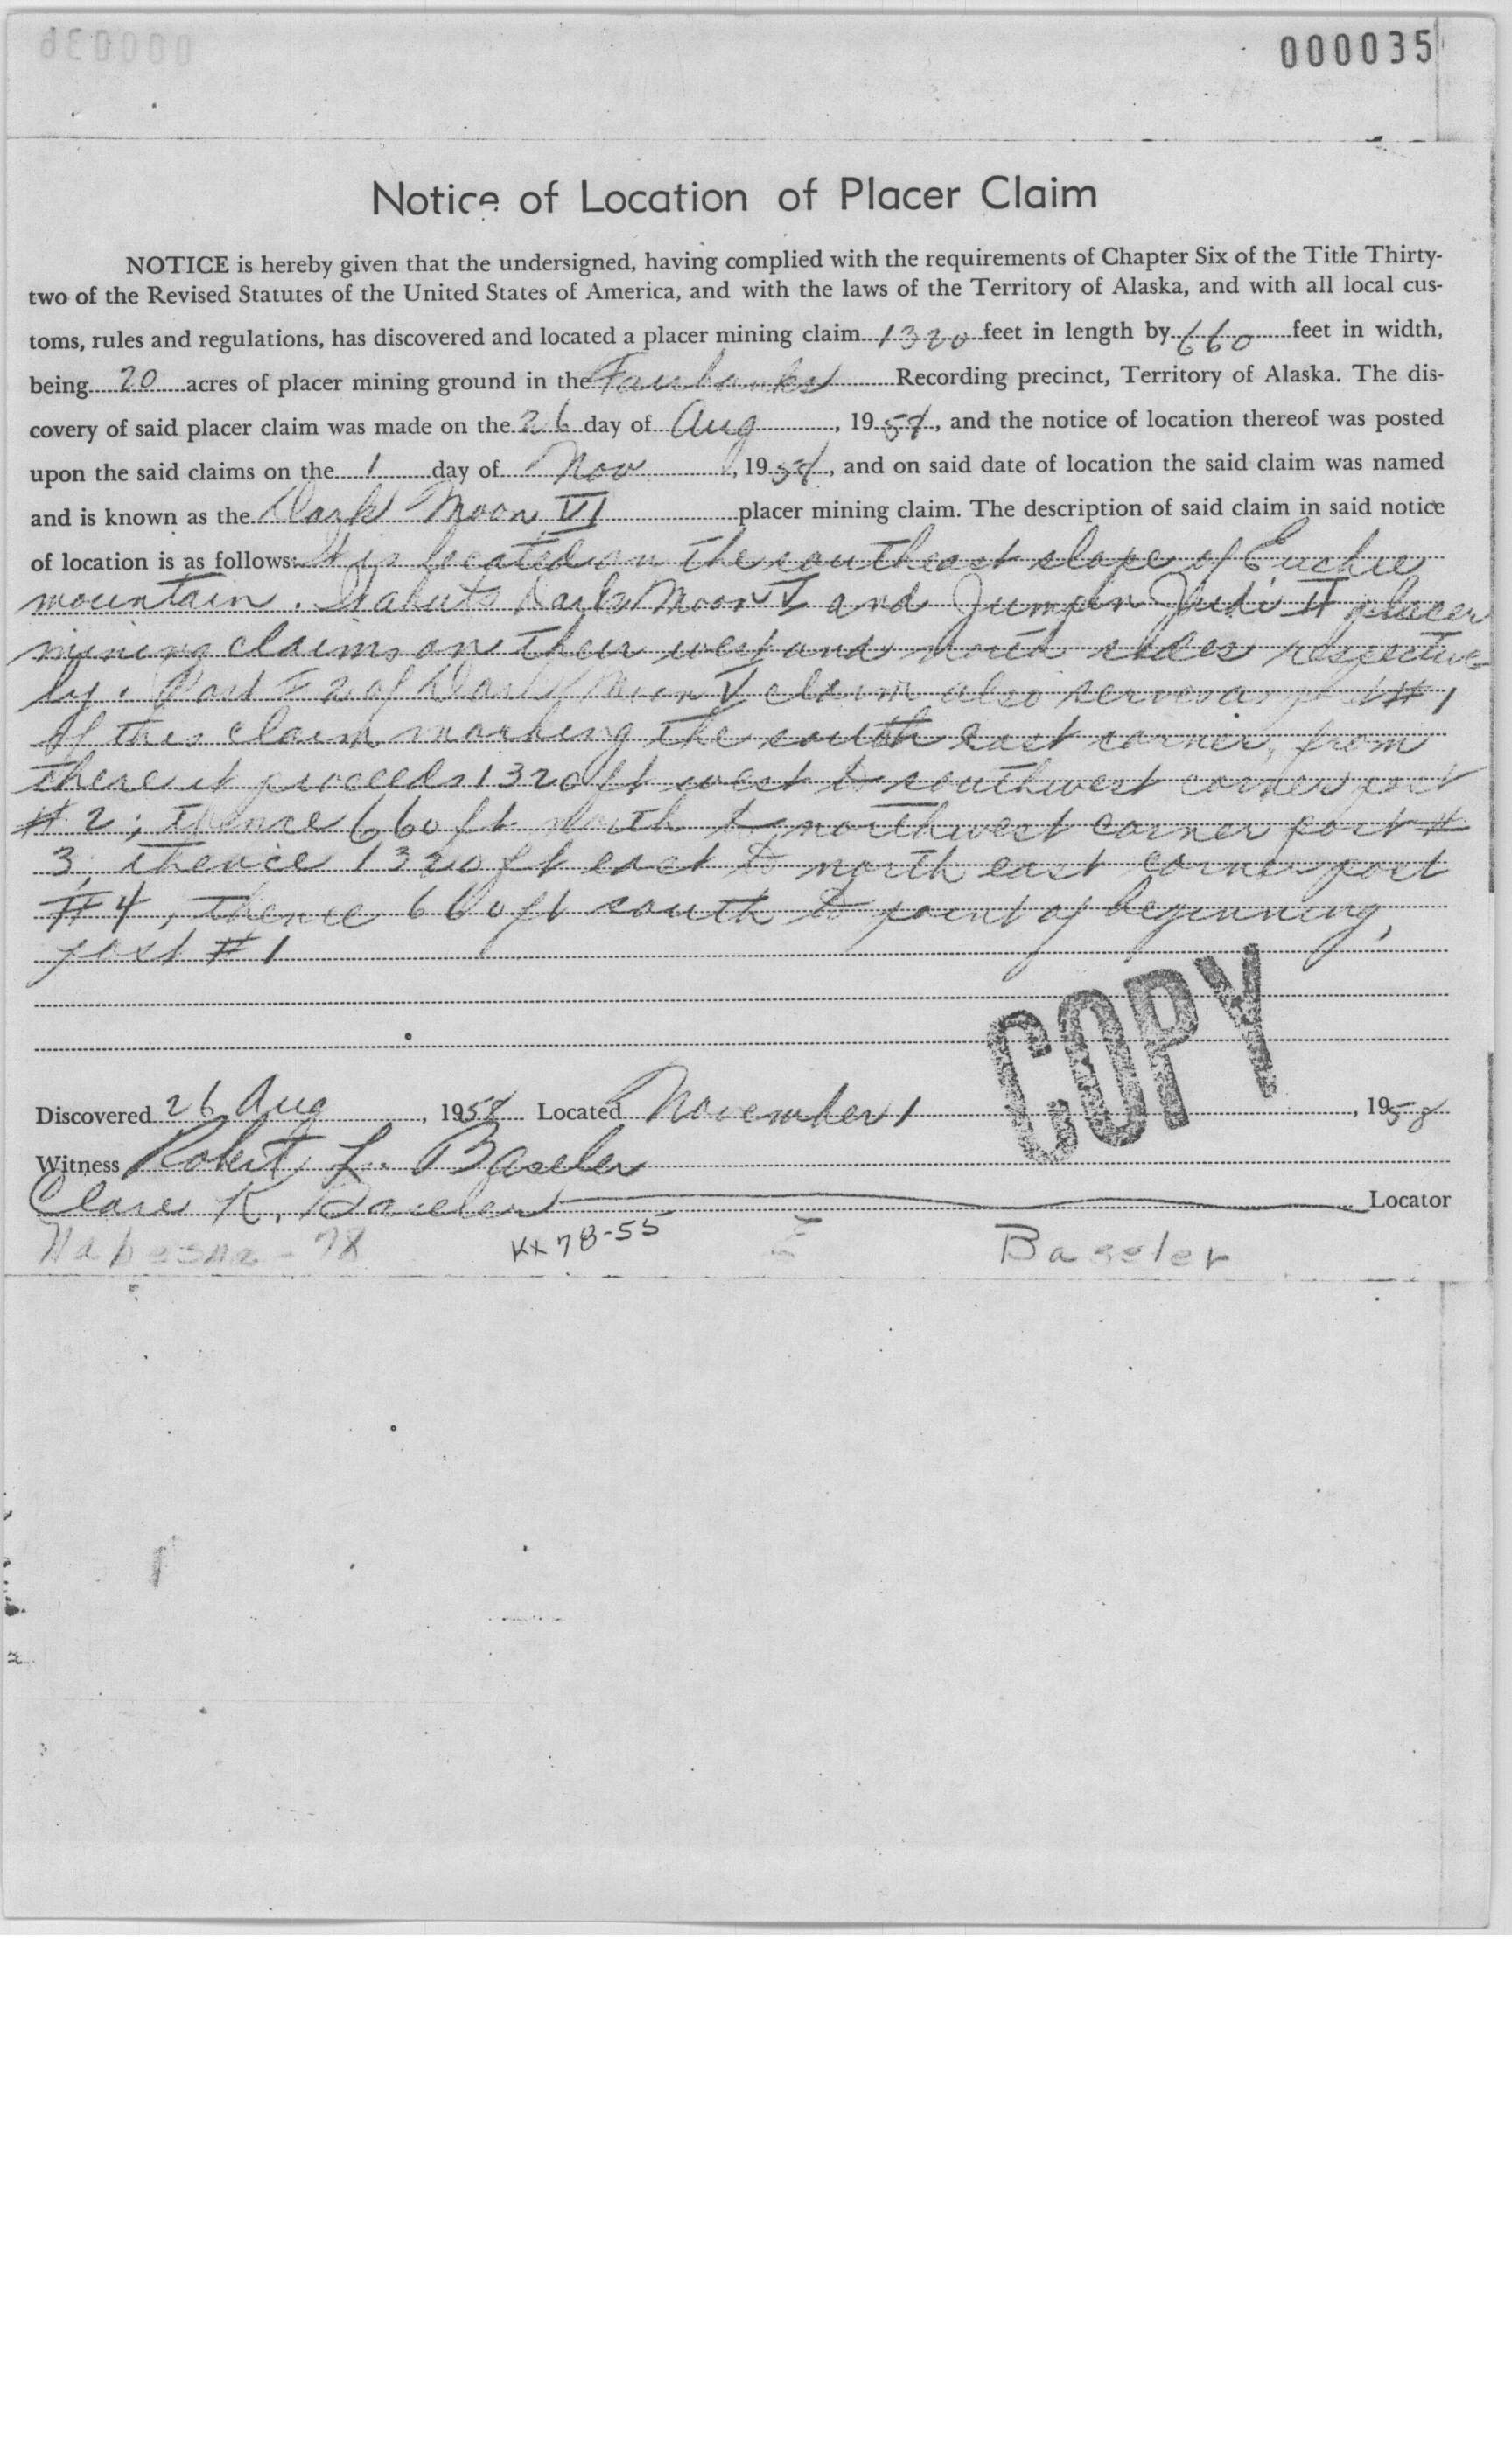 000036
000035
Notice of Location of Placer Claim
NOTICE is hereby given that the undersigned, having complied with the requirements of Chapter Six of the Title Thirty-
two of the Revised Statutes of the United States of America, and with the laws of the Territory of Alaska, and with all local cus-
toms, rules and regulations, has discovered and located a placer mining claim 1320 feet in length by 660 feet in width,
being 20 acres of placer mining ground in the Fairbanks Recording precinct, Territory of Alaska. The dis-
covery of said placer claim was made on the 26 day of Aug, 1958, and the notice of location thereof was posted
upon the said claims on the 1 day of Nov, 1958, and on said date of location the said claim was named
and is known as the Dark Moon VI placer mining claim. The description of said claim in said notice
of location is as follows: It is located on the southeast slope of Euchre
mountain. It abuts Dark Moon V and Jumpin Judi II placer
mining claims on their west and north sides respective-
ly. Post #2 of Dark Moon V claim also serves as post #1
of this claim marking the south east corner, from
there it proceeds 1320 ft west to southwest corner post
#2; thence 660 ft north to northwest corner post #
3; thence 1320 ft east to north east corner post
#4, thence 660 ft south to point of beginning,
post #1
COPY
Discovered 26 Aug, 1958 Located November 1, 1958
Witness Robert L. Baseler
Clare K. Baseler Locator
Nabesna - 78 Kx 78-55 Baseler